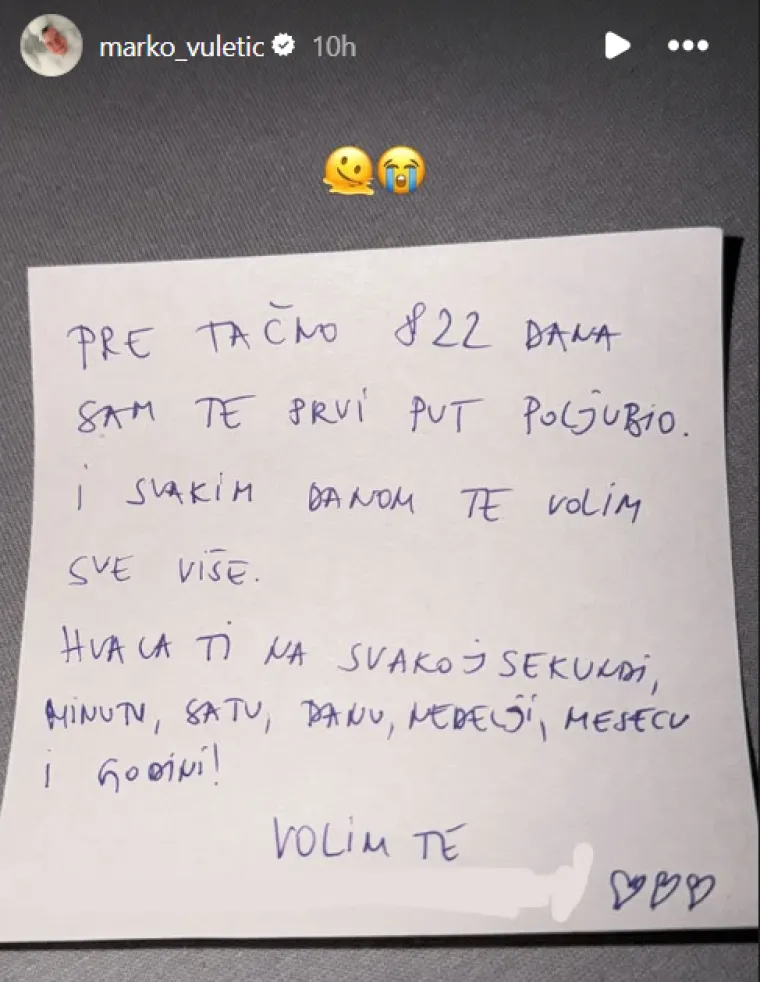 marko_vuletic 10h
PRE TAČNO 822 DANA
SAM TE PRVI PUT POLJUBIO.
I SVAKIM DANOM TE VOLIM
SVE VIŠE.
HVALA TI NA SVAKOJ SEKUNDI,
MINUTU, SATU, DANU, NEDELJI, MESECU
I GODINI!
VOLIM TE